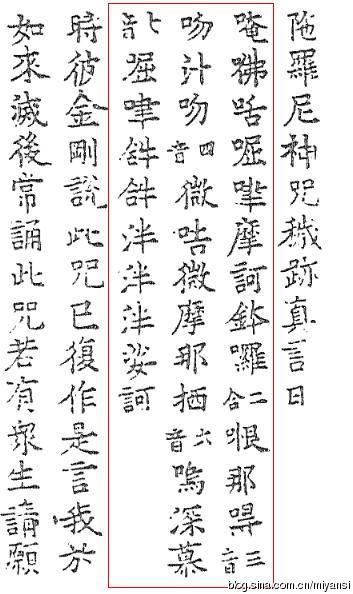 陁羅尼神咒穢跡真言曰
唵咈咶啒㖀摩訶鉢囉二合㖃那㝵三音
吻汁吻四音微咭微摩那栖六音嗚深慕
八音啒㖀𤙖𤙖泮泮泮娑訶
時彼金剛說此咒已復作是言我於
如來滅後常誦此咒若有衆生請願
blog.sina.com.cn/miyansi